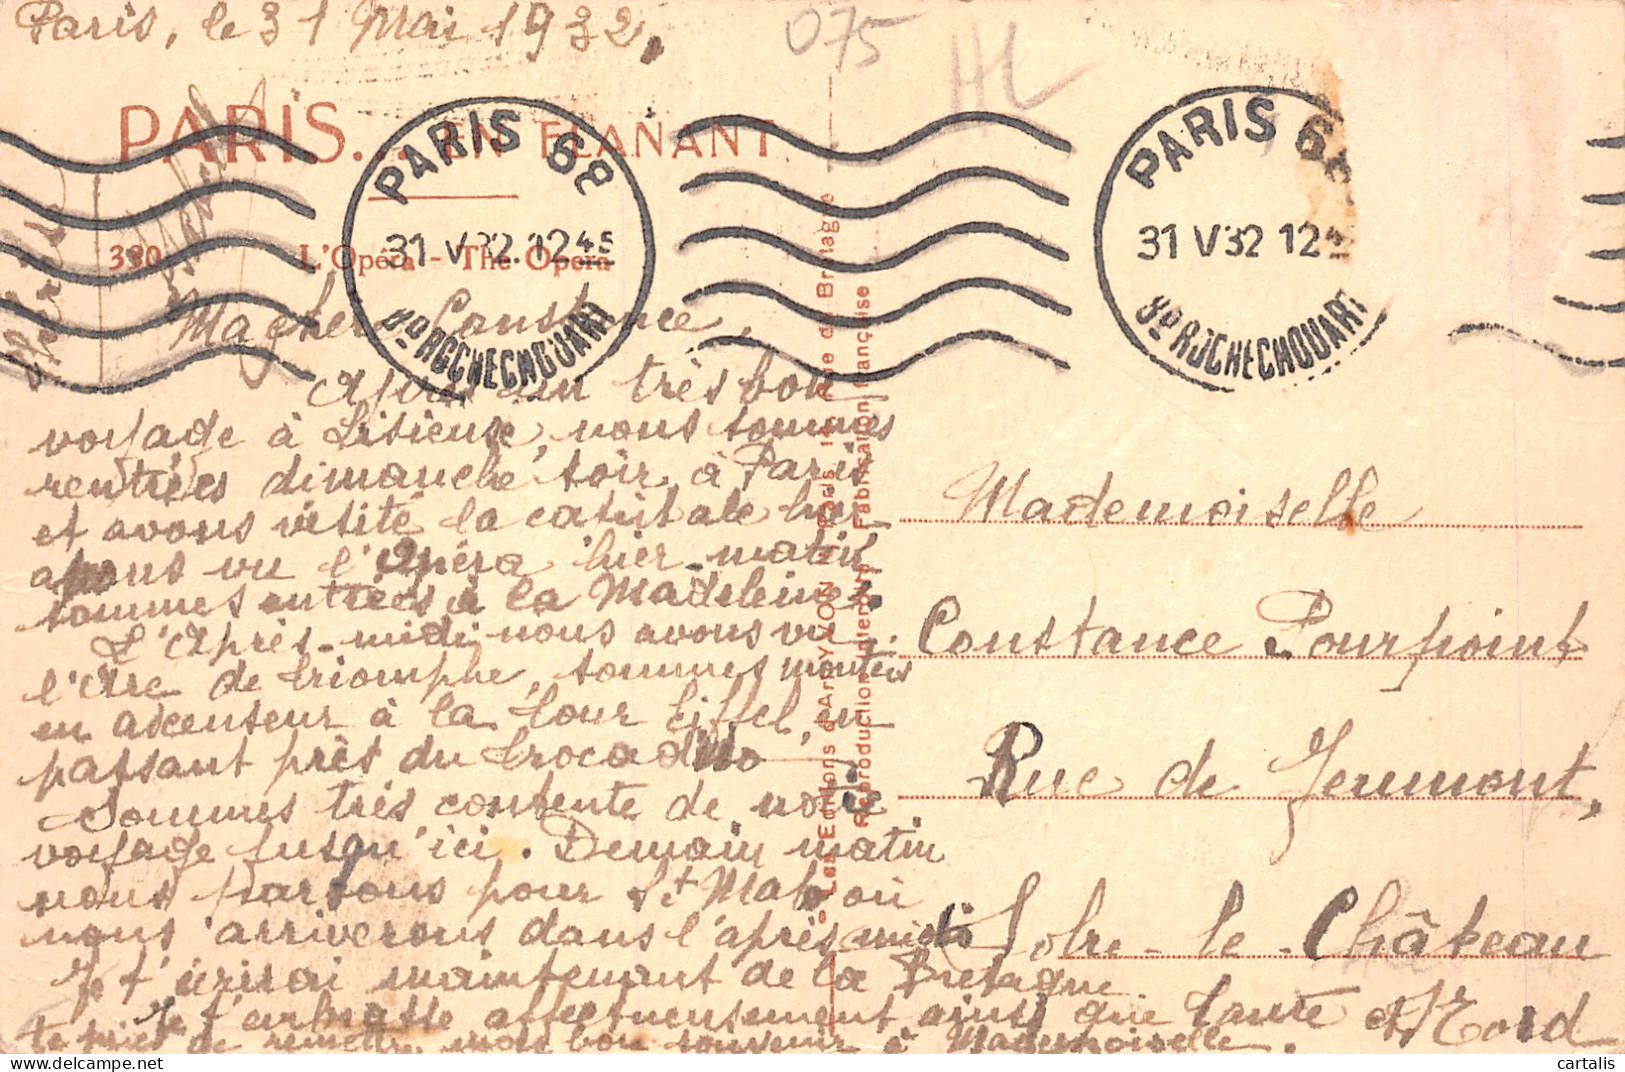 Paris, le 31 Mai 1932.
075
HL
PARIS... EN FLANANT
PARIS 68
31 V 32. 12 45
Bd ROCHECHOUART
PARIS 68
31 V 32 12 4
Bd ROCHECHOUART
390 L'Opéra - The Opera
Ma chère Constance,
Après un très bon
voyage à Lisieuse, nous sommes
rentrées dimanche soir à Paris
et avons visité la capitale hier
avons vu l'Opéra hier matin
sommes entrées à la Madeleine.
L'après-midi nous avons vu
l'Arc de triomphe, sommes montées
en ascenseur à la tour Eiffel, en
passant près du trocadéro
Sommes très contente de notre
voyage jusqu'ici. Demain matin
nous partons pour St Malo où
nous arriverons dans l'après midi
Je t'écrirai maintenant de la Bretagne.
Je t'embrasse affectueusement ainsi que tante et
te prie de remettre mon bon souvenir à Mademoiselle.
Les Editions d'Art YVON Paris, Rue de Bretagne
Reproduction interdite Fabrication française
Mademoiselle
Constance Pourpoint
Rue de Jeumont,
Solre-le-Château
Nord
cartalis